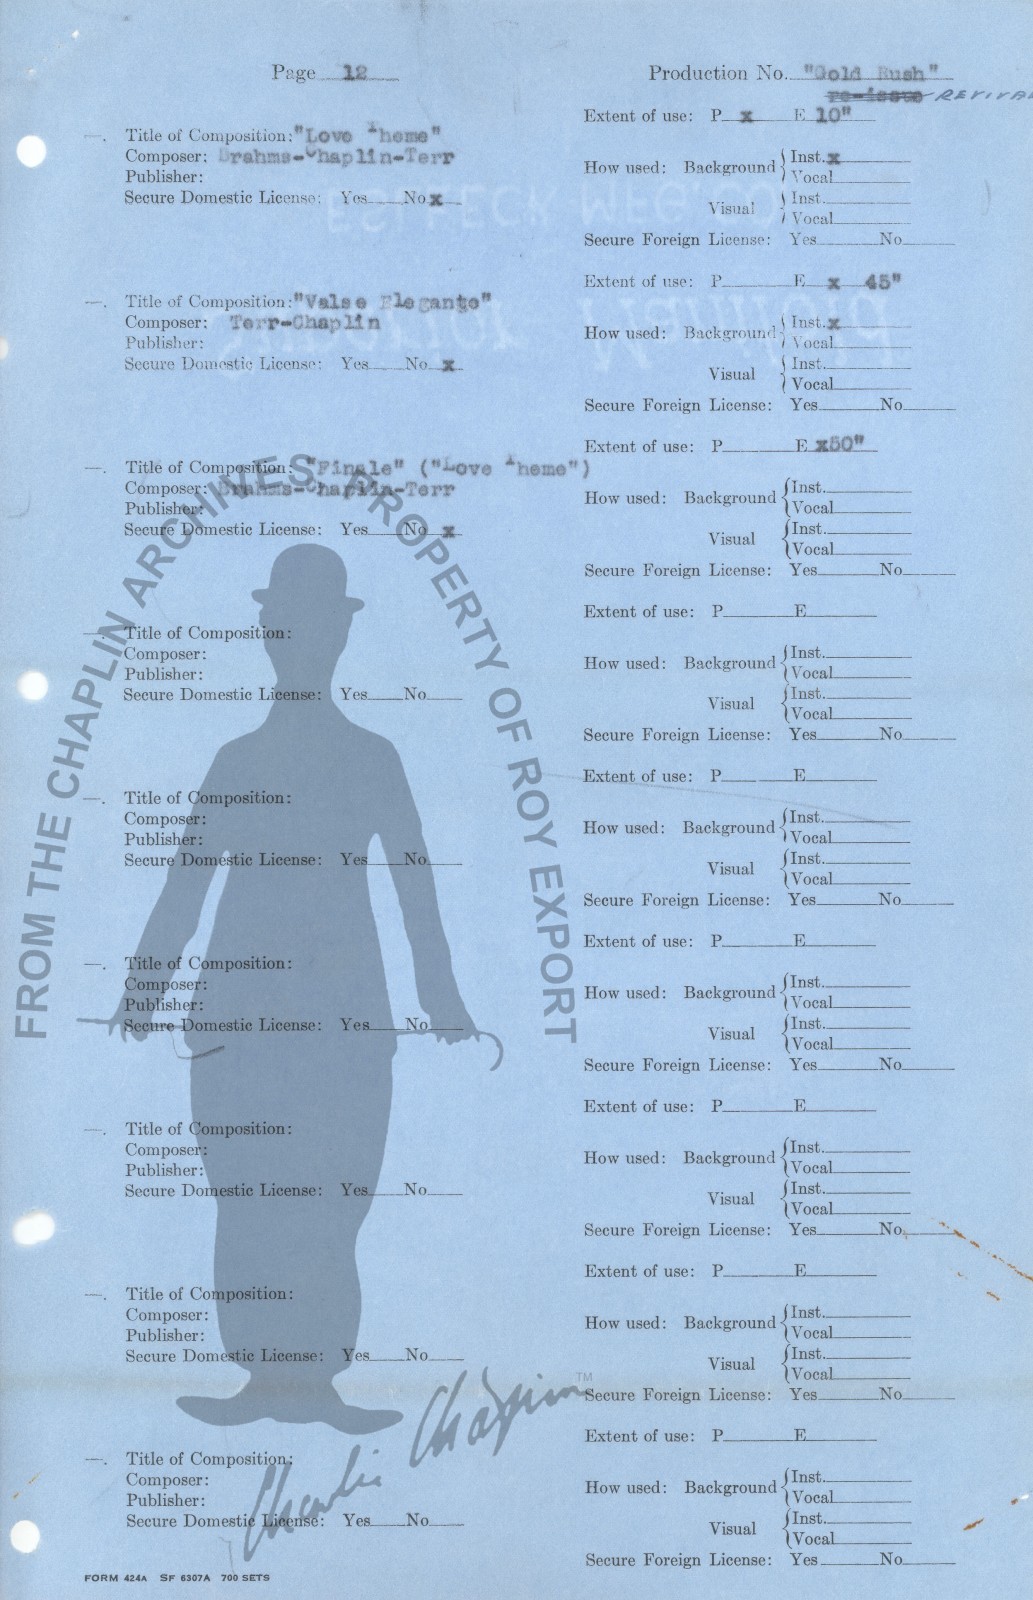 Page 12 Production No. "Gold Rush"
re-issue REVIVAL
Extent of use: P x E 10"
—. Title of Composition: "Love Theme"
Composer: Brahms-Chaplin-Terr
Publisher:
Secure Domestic License: Yes No x
How used: Background Inst. x
Vocal
Visual Inst.
Vocal
Secure Foreign License: Yes No
Extent of use: P E x 45"
—. Title of Composition: "Valse Elegante"
Composer: Terr-Chaplin
Publisher:
Secure Domestic License: Yes No x
How used: Background Inst. x
Vocal
Visual Inst.
Vocal
Secure Foreign License: Yes No
Extent of use: P E x50"
—. Title of Composition: "Finale" ("Love Theme")
Composer: Brahms-Chaplin-Terr
Publisher:
Secure Domestic License: Yes No x
How used: Background Inst.
Vocal
Visual Inst.
Vocal
Secure Foreign License: Yes No
Extent of use: P E
—. Title of Composition:
Composer:
Publisher:
Secure Domestic License: Yes No
How used: Background Inst.
Vocal
Visual Inst.
Vocal
Secure Foreign License: Yes No
Extent of use: P E
—. Title of Composition:
Composer:
Publisher:
Secure Domestic License: Yes No
How used: Background Inst.
Vocal
Visual Inst.
Vocal
Secure Foreign License: Yes No
Extent of use: P E
—. Title of Composition:
Composer:
Publisher:
Secure Domestic License: Yes No
How used: Background Inst.
Vocal
Visual Inst.
Vocal
Secure Foreign License: Yes No
Extent of use: P E
—. Title of Composition:
Composer:
Publisher:
Secure Domestic License: Yes No
How used: Background Inst.
Vocal
Visual Inst.
Vocal
Secure Foreign License: Yes No
Extent of use: P E
—. Title of Composition:
Composer:
Publisher:
Secure Domestic License: Yes No
How used: Background Inst.
Vocal
Visual Inst.
Vocal
Secure Foreign License: Yes No
Extent of use: P E
—. Title of Composition:
Composer:
Publisher:
Secure Domestic License: Yes No
How used: Background Inst.
Vocal
Visual Inst.
Vocal
Secure Foreign License: Yes No
FORM 424A SF 6307A 700 SETS
FROM THE CHAPLIN ARCHIVES, PROPERTY OF ROY EXPORT
Charlie Chaplin TM